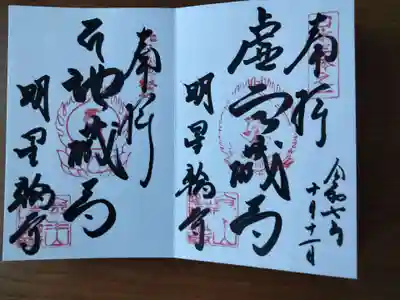 奉拝
虚空蔵尊
明星輪寺
令和七年
十月十一日
奉拝
地蔵尊
明星輪寺